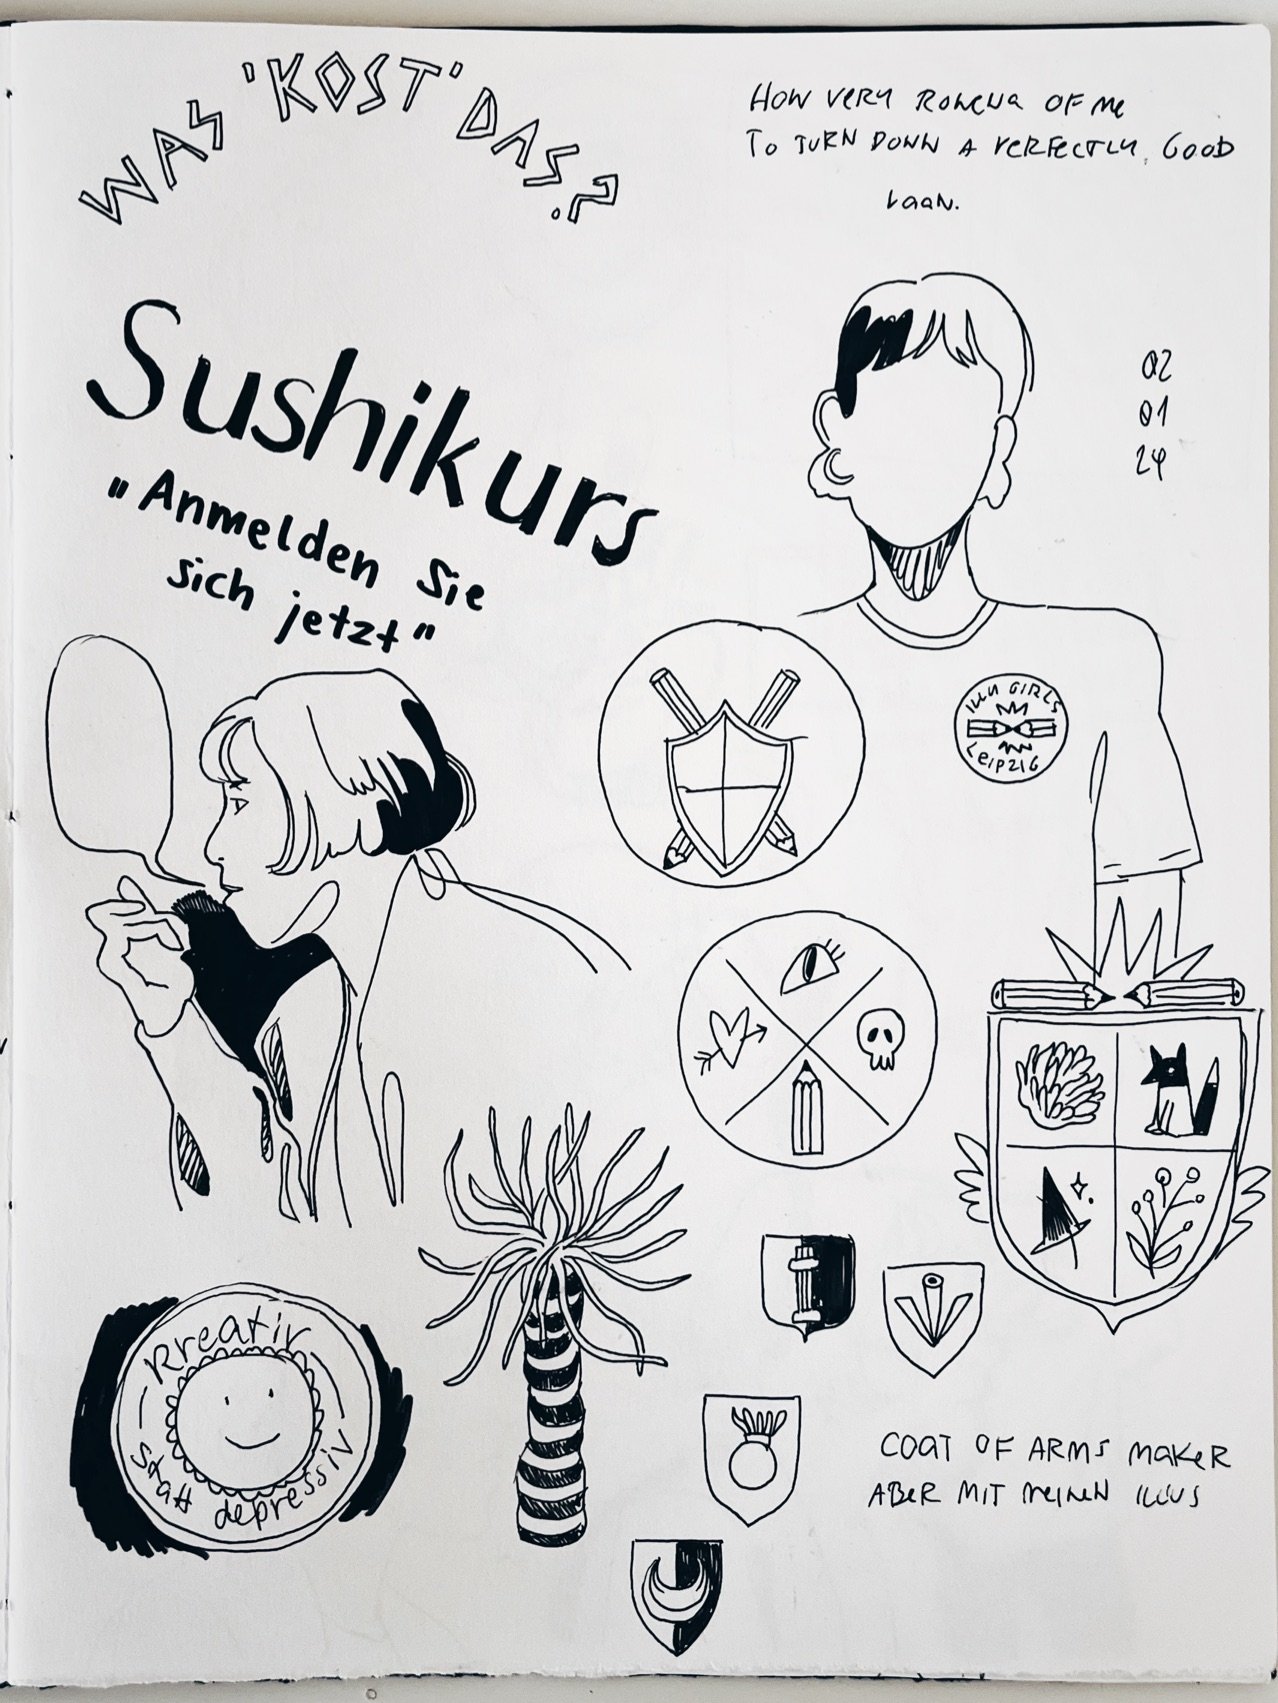 WAS 'KOST' DAS?
HOW VERY ROWENA OF ME
TO TURN DOWN A PERFECTLY GOOD
LOAN.
Sushikurs
"Anmelden Sie
sich jetzt"
02
01
24
ILLU GIRLS
LEIPZIG
Kreativ
statt depressiv
COAT OF ARMS MAKER
ABER MIT MEINEN ILLUS